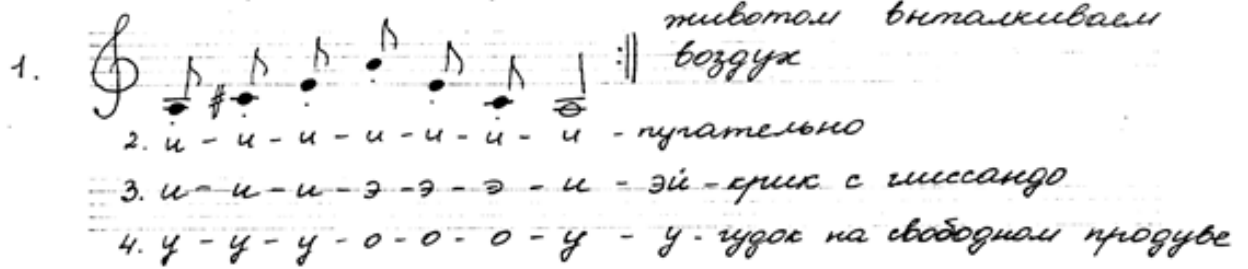 животом выталкиваем
1. воздух
2. и - и - и - и - и - и - и - пугательно
3. и - и - и - э - э - э - и - эй - крик с глиссандо
4. у - у - у - о - о - о - у - у - гудок на свободном продуве